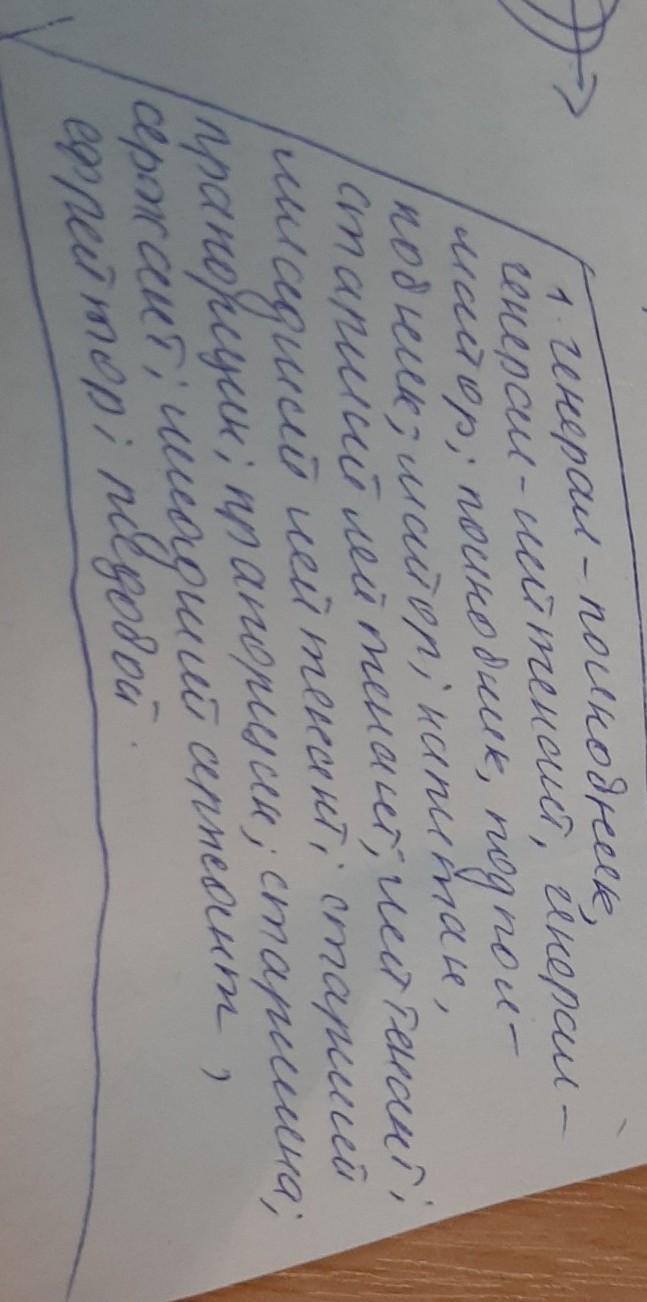 1. генерал-полковник,
генерал-лейтенант, генерал-
майор; полковник, подпол-
ковник; майор; капитан,
старший лейтенант; лейтенант;
младший лейтенант; старший
прапорщик; прапорщик; старшина;
сержант; младший сержант,
ефрейтор; рядовой.